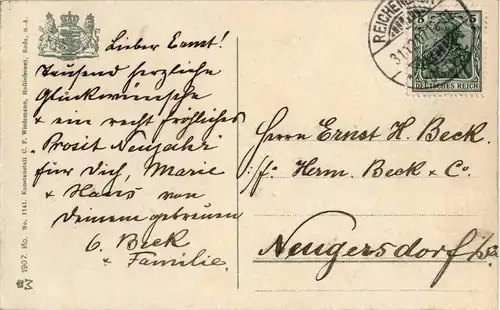 Lieber Ernst!
Tausend herzliche
Glückwünsche
+ ein recht fröhliches
"Prosit Neujahr"
für Dich, Marie
+ Hans von
Deinem getreuen
C. Beck
+ Familie.
Herrn Ernst H. Beck.
i/f: Herm. Beck & Co.
Neugersdorf i/Sa.
DEUTSCHES REICH
5 5
1907. No. 1141. Kunstanstalt C. F. Wiedemann, Hoflieferant, Roda, S.-A.